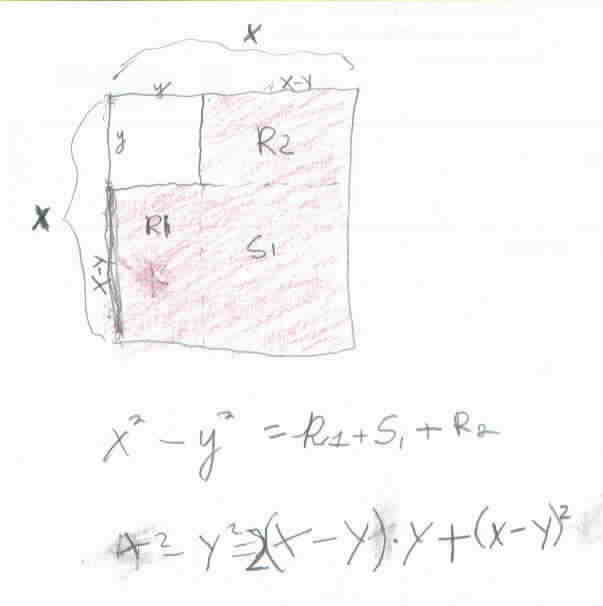 X
y
X-Y
y
R2
X
R1
S1
X-Y
x² - y² = R1 + S1 + R2
x² - y² = 2(x - y)·y + (x-y)²